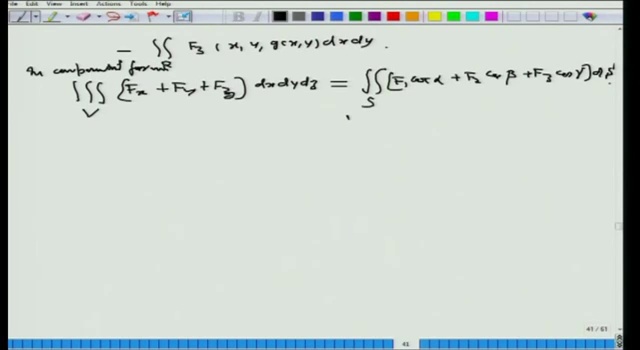 File View Insert Actions Tools Help
B
– ∬ F₃ (x, y, g(x,y)) dx dy.
R
In component form
∭ [Fx + Fy + Fz] dx dy dz = ∬ [F₁ cos α + F₂ cos β + F₃ cos γ] dS
V S
41 / 61
41